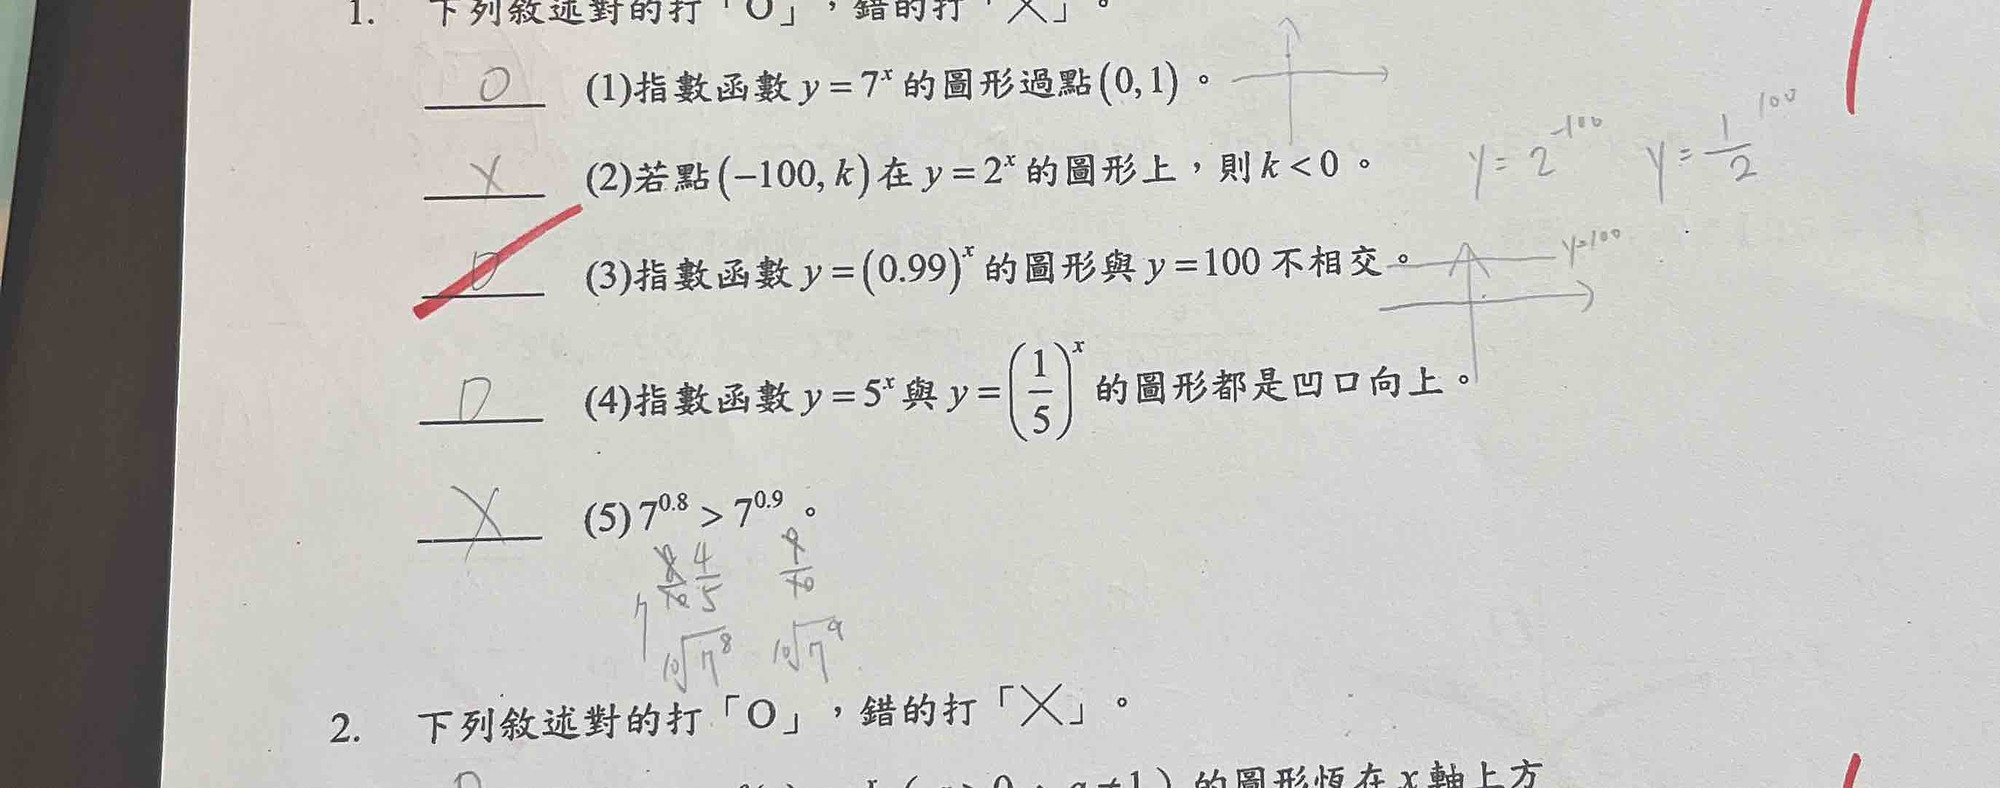 1. 下列敘述對的打「O」，錯的打「╳」。
O (1)指數函數 y = 7^x 的圖形過點(0,1)。
X (2)若點(−100, k)在 y = 2^x 的圖形上，則 k < 0。 y=2^-100 y=1/2^100
O (3)指數函數 y = (0.99)^x 的圖形與 y = 100 不相交。 y=100
O (4)指數函數 y = 5^x 與 y = (1/5)^x 的圖形都是凹口向上。
X (5) 7^0.8 > 7^0.9。
7 8/10 4/5 9/10
10√7^8 10√7^9
2. 下列敘述對的打「O」，錯的打「╳」。
的圖形恆在 x 軸上方